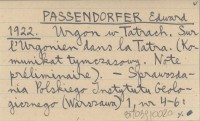 PASSENDORFER Edward
1922. Urgon w Tatrach. Sur
l'Urgonien dans la Tatra. (Ko-
munikat tymczasowy. Note
préliminaire). — Sprawozda-
nia Polskiego Instytutu Geolo-
gicznego (Warszawa) 1, nr 4-6: